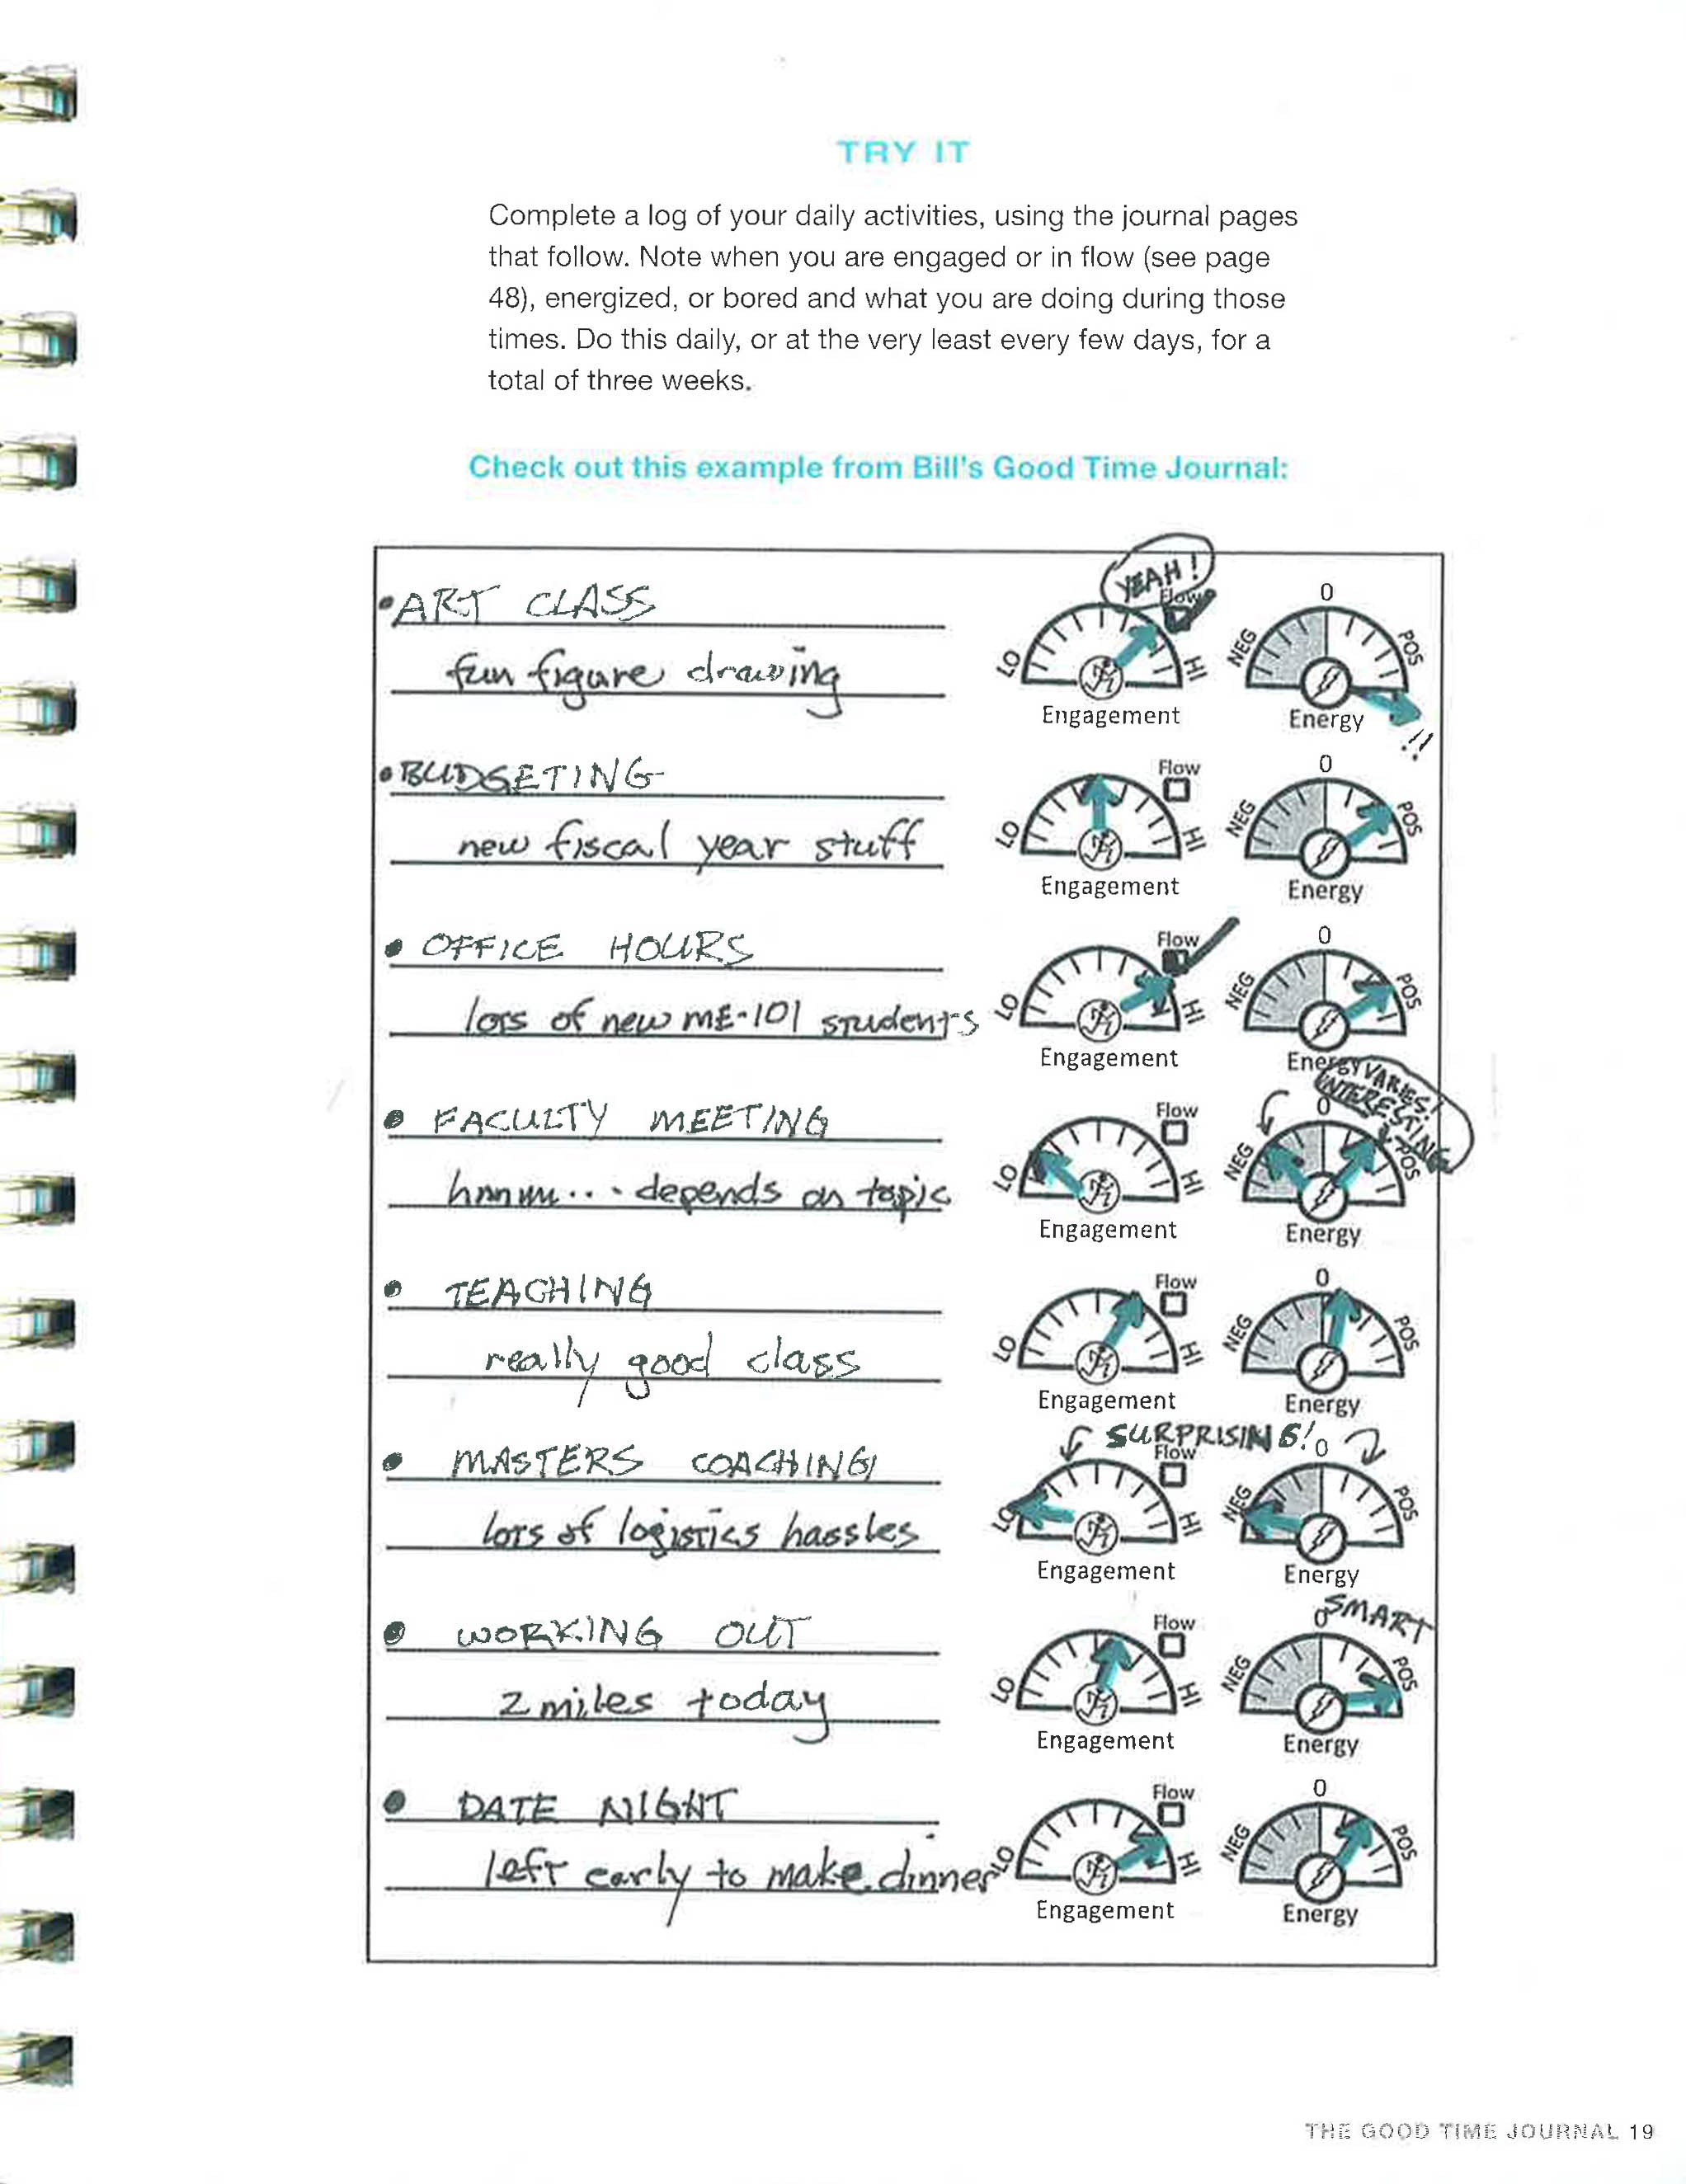 TRY IT
Complete a log of your daily activities, using the journal pages
that follow. Note when you are engaged or in flow (see page
48), energized, or bored and what you are doing during those
times. Do this daily, or at the very least every few days, for a
total of three weeks.
Check out this example from Bill's Good Time Journal:
YEAH!
• ART CLASS
Flow
0
fun figure drawing
LO HI NEG POS
Engagement Energy !!
• BUDGETING
Flow
0
new fiscal year stuff
LO HI NEG POS
Engagement Energy
• OFFICE HOURS
Flow
0
lots of new ME-101 students
LO HI NEG POS
Engagement Energy
VARIES!
INTERESTING
• FACULTY MEETING
Flow
0
hmmm... depends on topic
LO HI NEG POS
Engagement Energy
• TEACHING
Flow
0
really good class
LO HI NEG POS
Engagement Energy
SURPRISING!
• MASTERS COACHING
Flow
0
lots of logistics hassles
LO HI NEG POS
Engagement Energy
SMART
• WORKING OUT
Flow
0
2 miles today
LO HI NEG POS
Engagement Energy
• DATE NIGHT
Flow
0
left early to make dinner
LO HI NEG POS
Engagement Energy
THE GOOD TIME JOURNAL 19